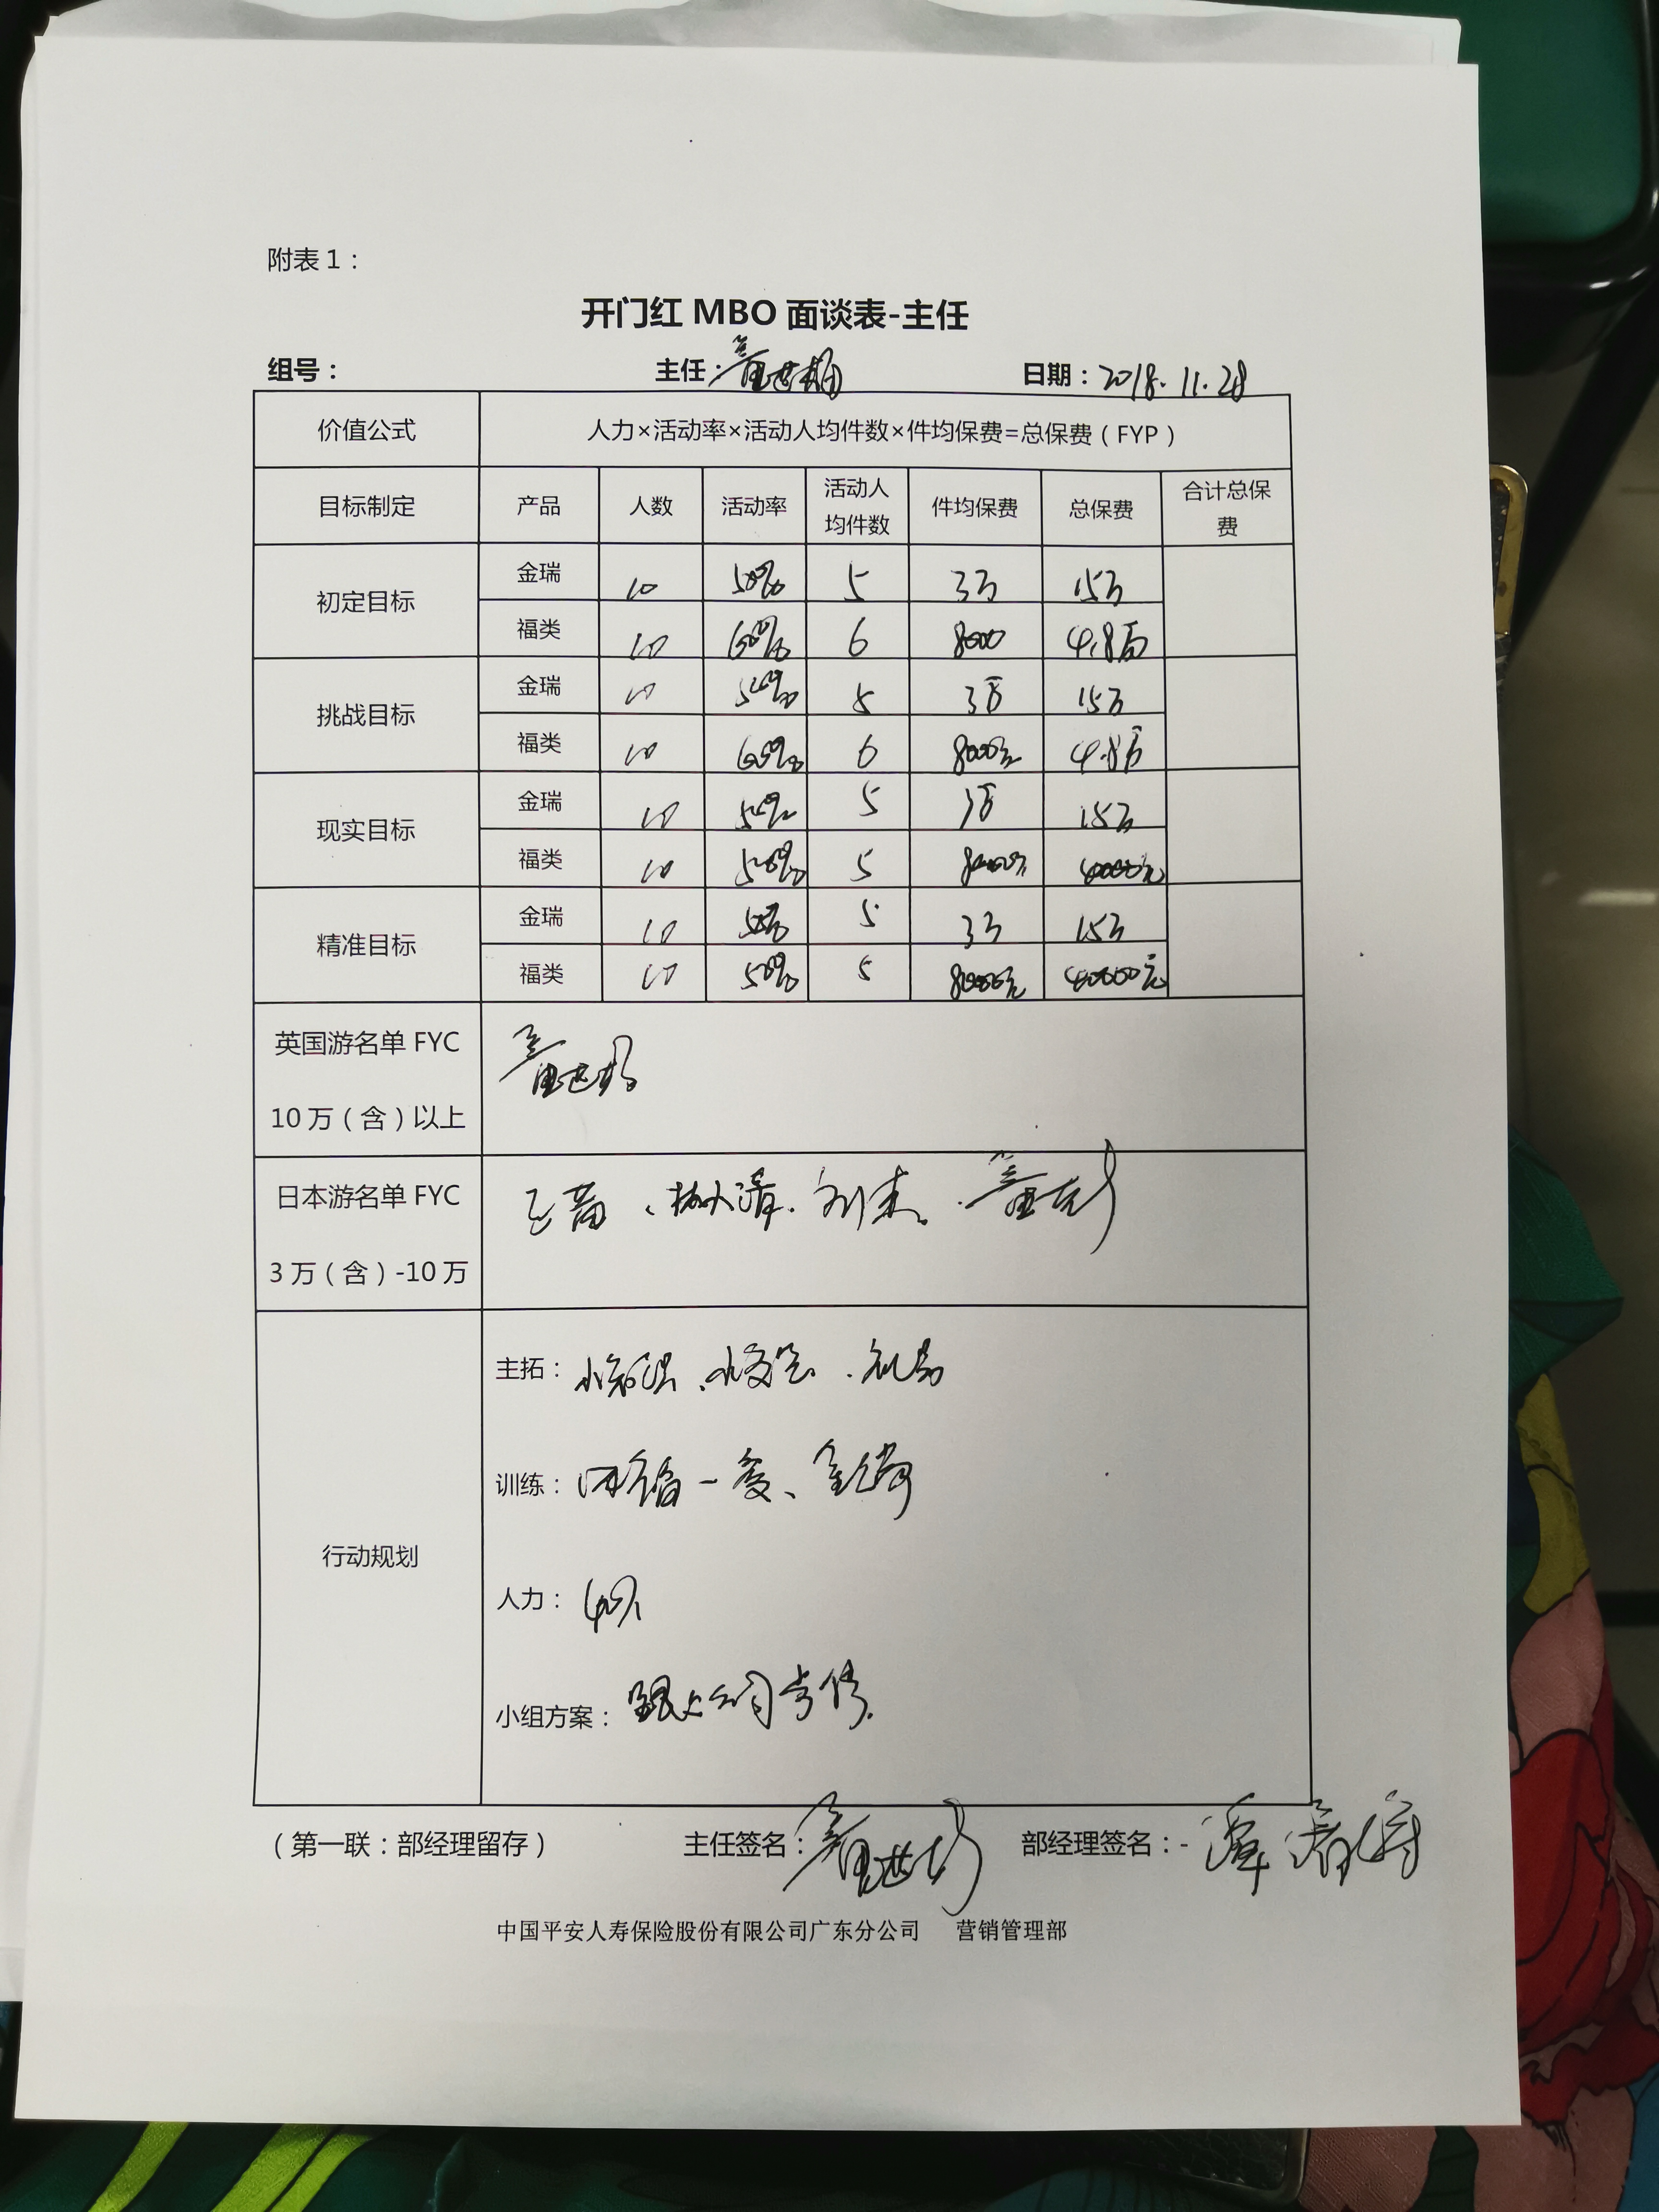 附表1：
开门红 MBO 面谈表-主任
组号： 主任： 日期：2018.11.28
价值公式 人力×活动率×活动人均件数×件均保费=总保费（FYP）
目标制定 产品 人数 活动率 活动人均件数 件均保费 总保费 合计总保费
初定目标 金瑞 10 50% 5 3万 15万
福类 10 60% 6 8000 4.8万
挑战目标 金瑞 10 50% 5 3万 15万
福类 10 60% 6 8000元 4.8万
现实目标 金瑞 10 50% 5 3万 15万
福类 10 50% 5 8000元 40000元
精准目标 金瑞 10 50% 5 3万 15万
福类 10 50% 5 8000元 40000元
英国游名单 FYC
10万（含）以上
日本游名单 FYC 刘杰
3万（含）-10万
行动规划
主拓：
训练：
人力：
小组方案：跟上公司
（第一联：部经理留存） 主任签名： 部经理签名：-
中国平安人寿保险股份有限公司广东分公司 营销管理部